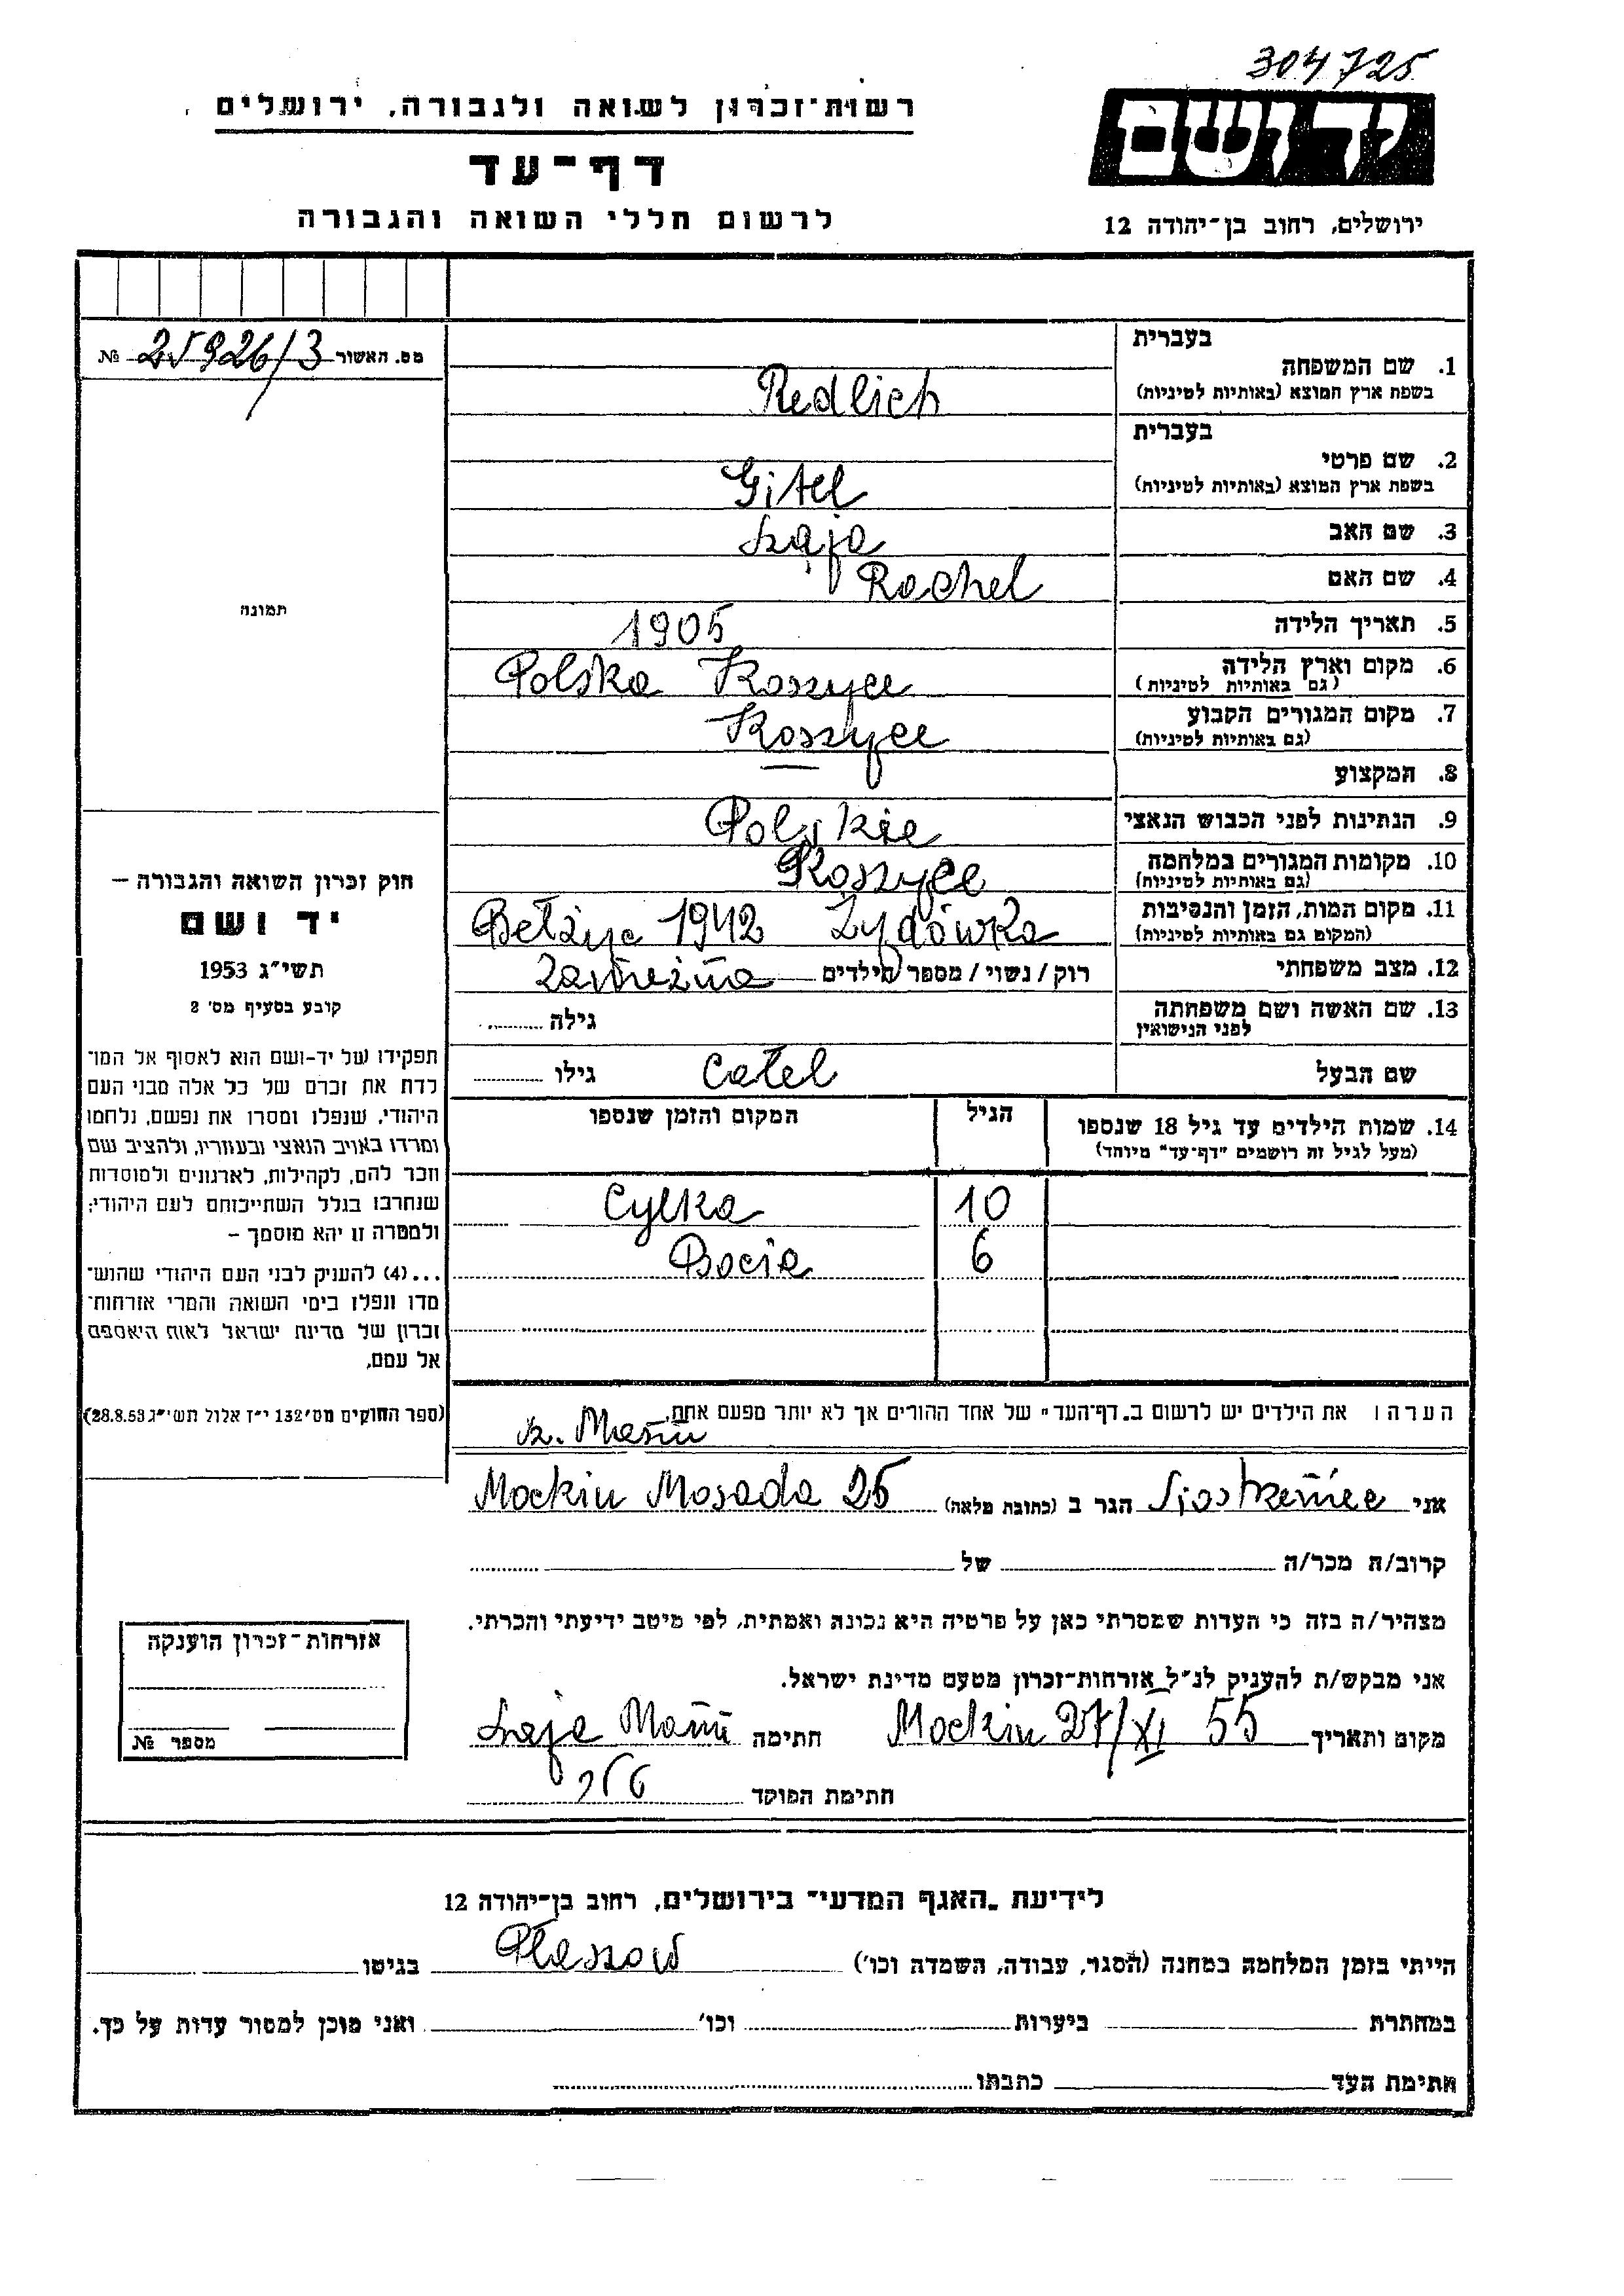 304725
רשות-זכרון לשואה ולגבורה, ירושלים
יד ושם
דף-עד
לרשום חללי השואה והגבורה
ירושלים, רחוב בן-יהודה 12
מס. האשור 25926/3 №
בעברית
1. שם המשפחה
בשפת ארץ המוצא (באותיות לטיניות) Redlich
בעברית
2. שם פרטי
בשפת ארץ המוצא (באותיות לטיניות) Gitel
3. שם האב Szaja
4. שם האם Rachel
5. תאריך הלידה 1905
6. מקום וארץ הלידה Polska Koszyce
(גם באותיות לטיניות)
7. מקום המגורים הקבוע Koszyce
(גם באותיות לטיניות)
8. המקצוע —
9. הנתינות לפני הכבוש הנאצי Polskie
10. מקומות המגורים במלחמה Koszyce
(גם באותיות לטיניות)
11. מקום המות, הזמן והנסיבות Bełżyc 1942 Żydówka
(המקום גם באותיות לטיניות)
12. מצב משפחתי רוק/נשוי/מספר הילדים Zamężna
13. שם האשה ושם משפחתה גילה
לפני הנישואין
שם הבעל Catel גילו
14. שמות הילדים עד גיל 18 שנספו הגיל המקום והזמן שנספו
(מעל לגיל זה רושמים "דף-עד" מיוחד)
10 Cylka
6 Bocia
הערה: את הילדים יש לרשום ב"דף-העד" של אחד ההורים אך לא יותר מפעם אחת.
תמונה
חוק זכרון השואה והגבורה –
יד ושם
תשי"ג 1953
קובע בסעיף מס' 2
תפקידו של יד-ושם הוא לאסוף אל המו־
לדת את זכרם של כל אלה מבני העם
היהודי, שנפלו ומסרו את נפשם, נלחמו
ומרדו באויב הנאצי ובעוזריו, ולהציב שם
וזכר להם, לקהילות, לארגונים ולמוסדות
שנחרבו בגלל השתייכותם לעם היהודי;
ולמטרה זו יהא מוסמך –
...(4) להעניק לבני העם היהודי שהוש־
מדו ונפלו בימי השואה והמרי אזרחות־
זכרון של מדינת ישראל לאות היאספם
אל עמם.
(ספר החוקים מס' 132 י"ז אלול תשי"ג 28.8.53)
אני Siostrzeniec הגר ב (כתובת מלאה) Mockin Mosada 25
קרוב/ה מכר/ה של
מצהיר/ה בזה כי העדות שמסרתי כאן על פרטיה היא נכונה ואמתית, לפי מיטב ידיעתי והכרתי.
אני מבקש/ת להעניק לנ"ל אזרחות-זכרון מטעם מדינת ישראל.
מקום ותאריך Mockin 27/XI 55 חתימה
חתימת הפוקד
אזרחות-זכרון הוענקה
מספר №
לידיעת "האגף המדעי" בירושלים, רחוב בן-יהודה 12
הייתי בזמן המלחמה במחנה (הסגר, עבודה, השמדה וכו') Płaszow בגיטו
במחתרת ביערות וכו' ואני מוכן למסור עדות על כך.
חתימת העד כתבתו